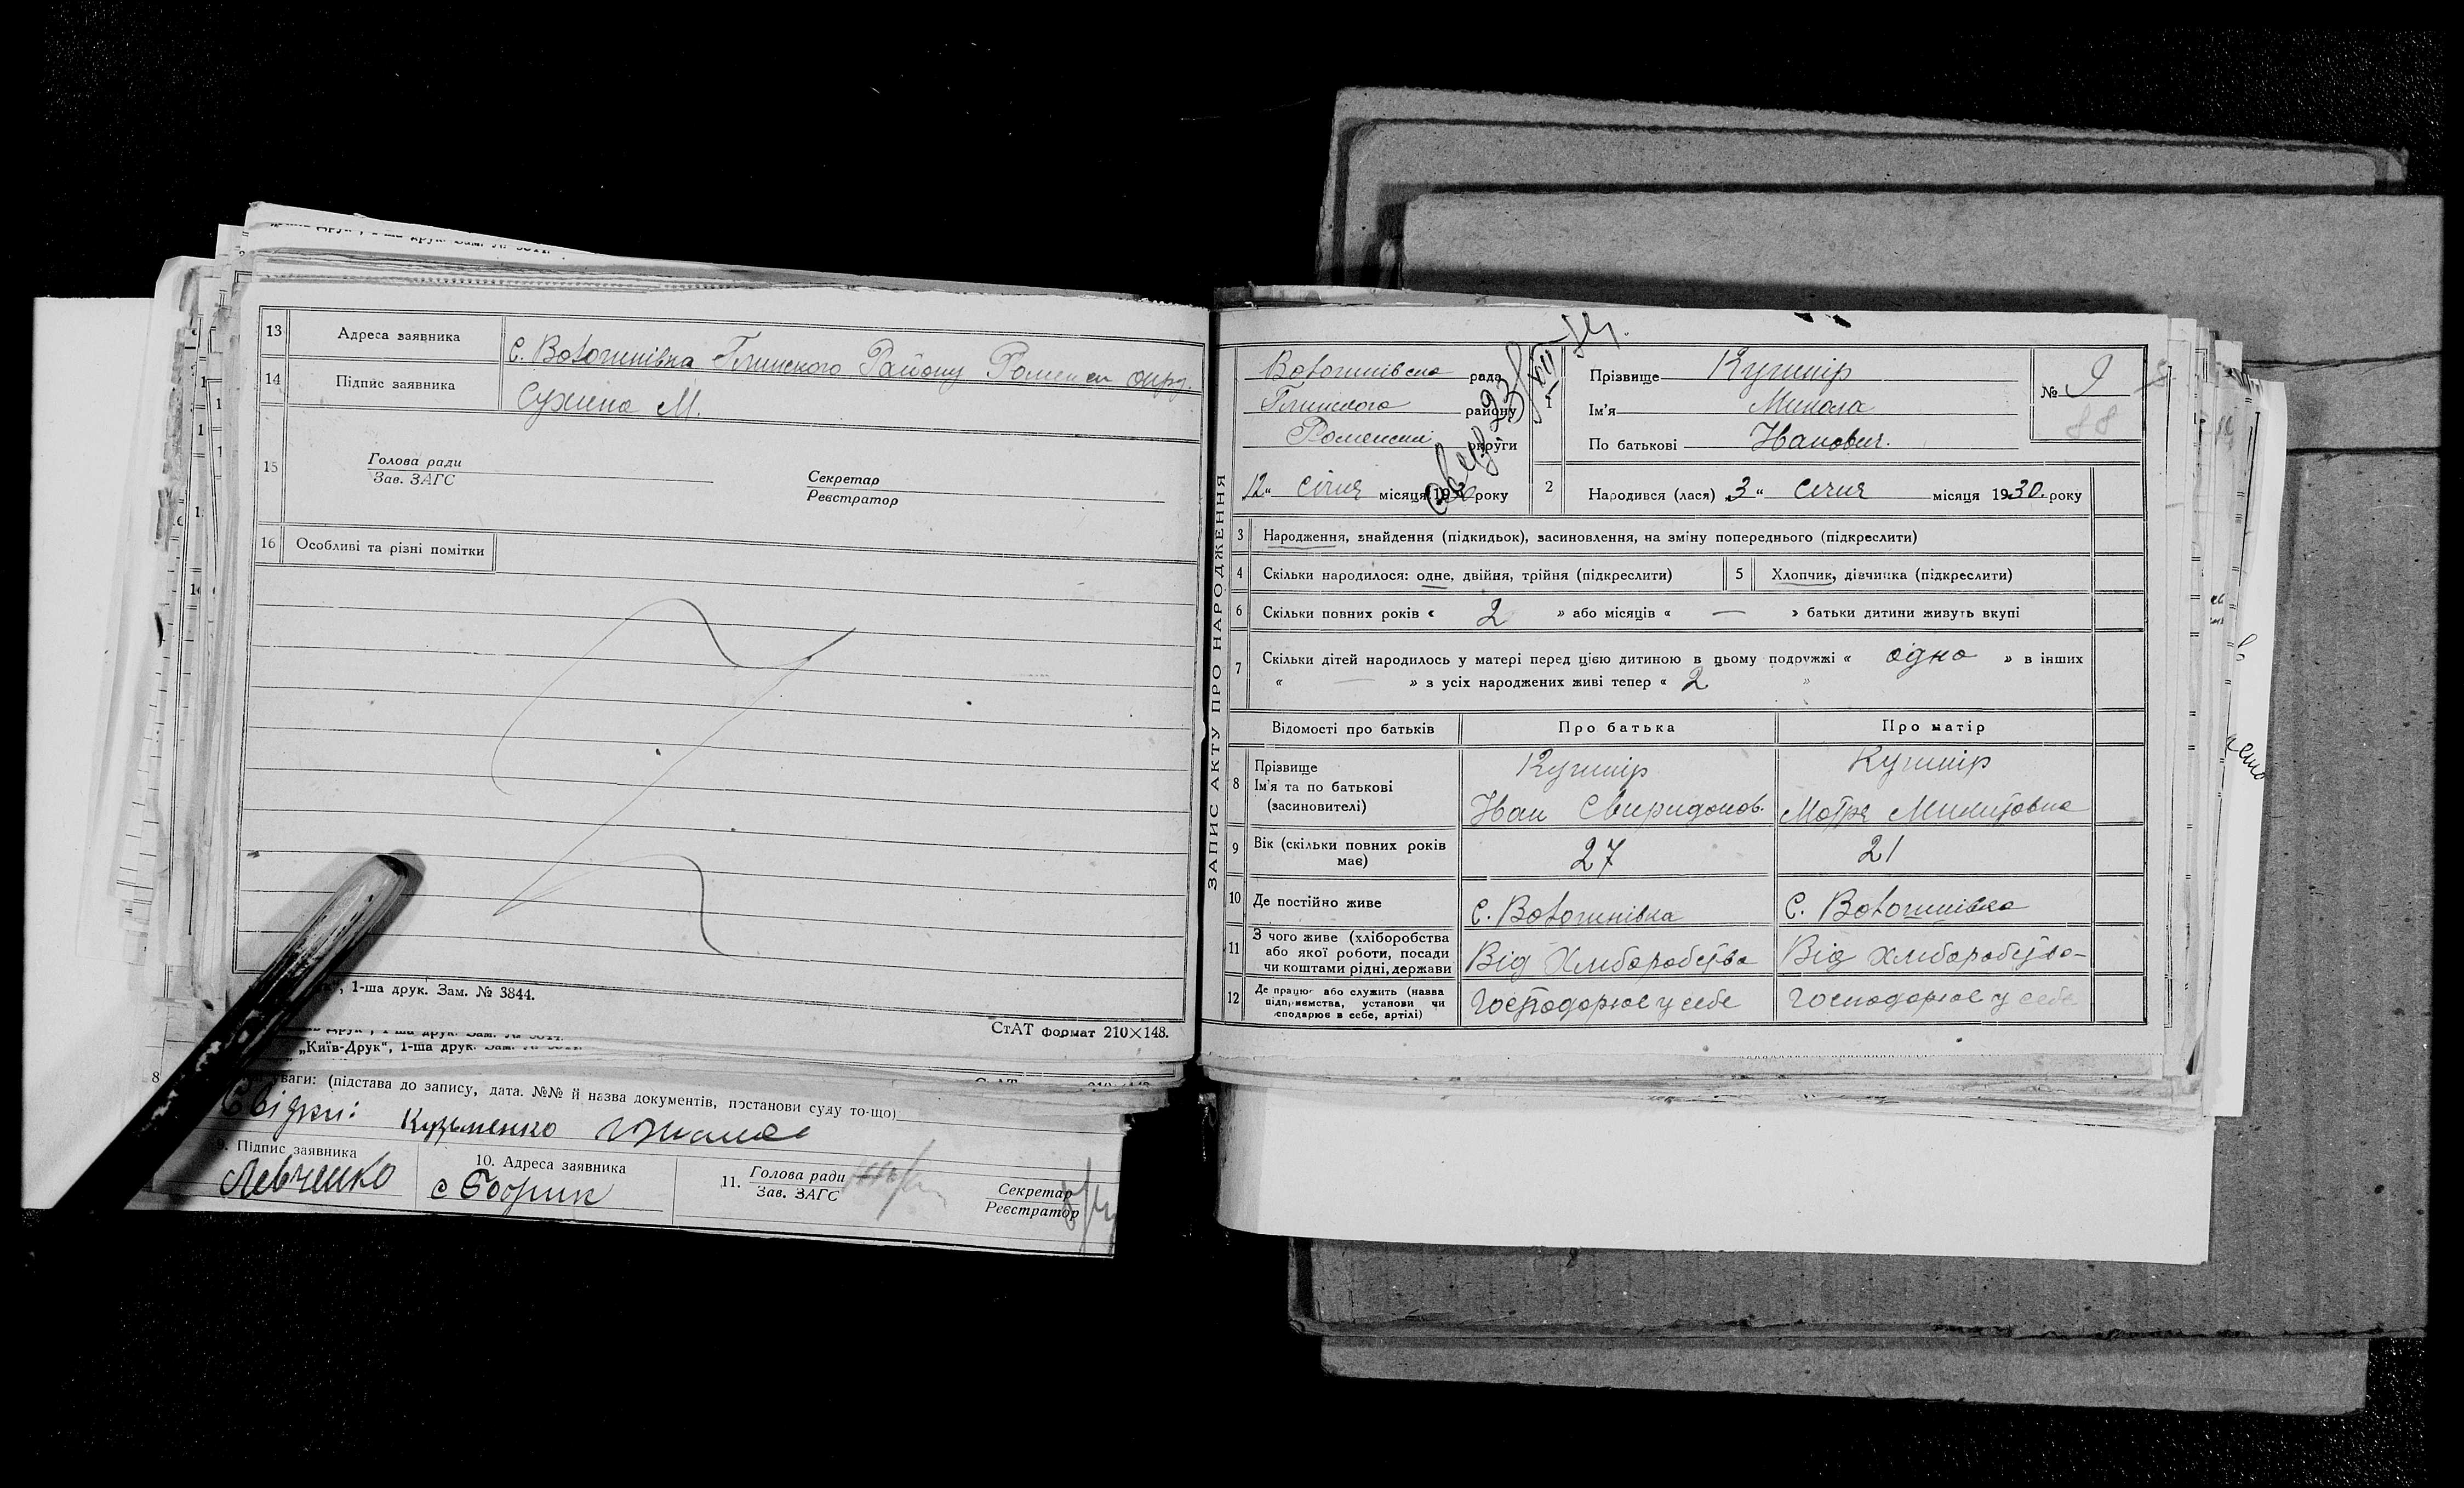 13 Адреса заявника С. Вовошнівка Глинского Району Роменск окрг.
14 Підпис заявника Сухина М.
15 Голова ради Секретар
Зав. ЗАГС Реєстратор
16 Особливі та різні помітки
1-ша друк. Зам. № 3844.
СтАТ формат 210×148.
„Київ-Друк“, 1-ша друк.
уваги: (підстава до запису, дата. №№ й назва документів, постанови суду то-що)
Свідки: Кузьменко
9. Підпис заявника 10. Адреса заявника 11. Голова ради Секретар
Зав. ЗАГС Реєстратор
Левченко
ЗАПИС АКТУ ПРО НАРОДЖЕННЯ
рада
Глинского району
Роменски округи
12 “ січня місяця 1930 року
1 Прізвище Кушнір
Ім'я Микола
По батькові Иванович.
№ 9
88
2 Народився (лася) „3 “ Січня місяця 1930. року
3 Народження, знайдення (підкидьок), засиновлення, на зміну попереднього (підкреслити)
4 Скільки народилося: одне, двійня, трійня (підкреслити) 5 Хлопчик, дівчинка (підкреслити)
6 Скільки повних років « 2 » або місяців « — » батьки дитини живуть вкупі
7 Скільки дітей народилось у матері перед цією дитиною в цьому подружжі « одно » в інших
« — » з усіх народжених живі тепер « 2 »
Відомості про батьків Про батька Про матір
8 Прізвище Кушнір Кушнір
Ім'я та по батькові Иван Свиридонов. Мотря Микитовна
(засиновителі)
9 Вік (скільки повних років має) 27 21
10 Де постійно живе С. Вовошнівка С. Вовошнівка
11 З чого живе (хліборобства
або якої роботи, посади
чи коштами рідні, держави Від Хлиборобства Від Хлиборобства
12 Де працює або служить (назва
підприємства, установи чи
сподарює в себе, артілі) Господорює у себе Господорює у себе